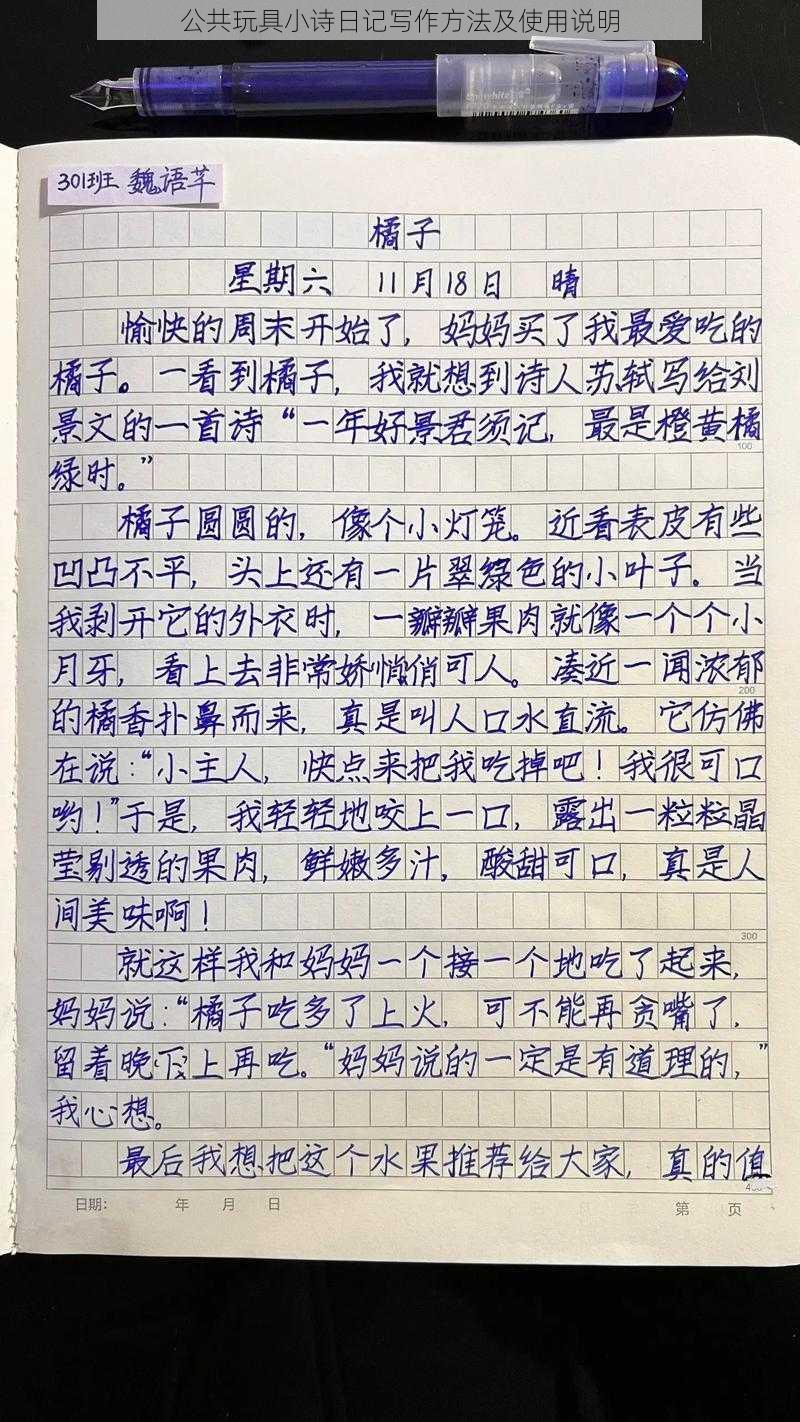 公共玩具小诗日记写作方法及使用说明
301班 魏语芊
橘子
星期六 11月18日 晴
愉快的周末开始了，妈妈买了我最爱吃的
橘子。一看到橘子，我就想到诗人苏轼写给刘
景文的一首诗“一年好景君须记，最是橙黄橘
100
绿时。”
橘子圆圆的，像个小灯笼。近看表皮有些
凹凸不平，头上还有一片翠绿色的小叶子。当
我剥开它的外衣时，一瓣瓣果肉就像一个个小
月牙，看上去非常娇悄俏可人。凑近一闻浓郁
200
的橘香扑鼻而来，真是叫人口水直流。它仿佛
在说：“小主人，快点来把我吃掉吧！我很可口
哟！”于是，我轻轻地咬上一口，露出一粒粒晶
莹剔透的果肉，鲜嫩多汁，酸甜可口，真是人
间美味啊！
300
就这样我和妈妈一个接一个地吃了起来，
妈妈说：“橘子吃多了上火，可不能再贪嘴了，
留着晚上再吃。“妈妈说的一定是有道理的，”
我心想。
最后我想把这个水果推荐给大家，真的值
日期： 年 月 日 第 页